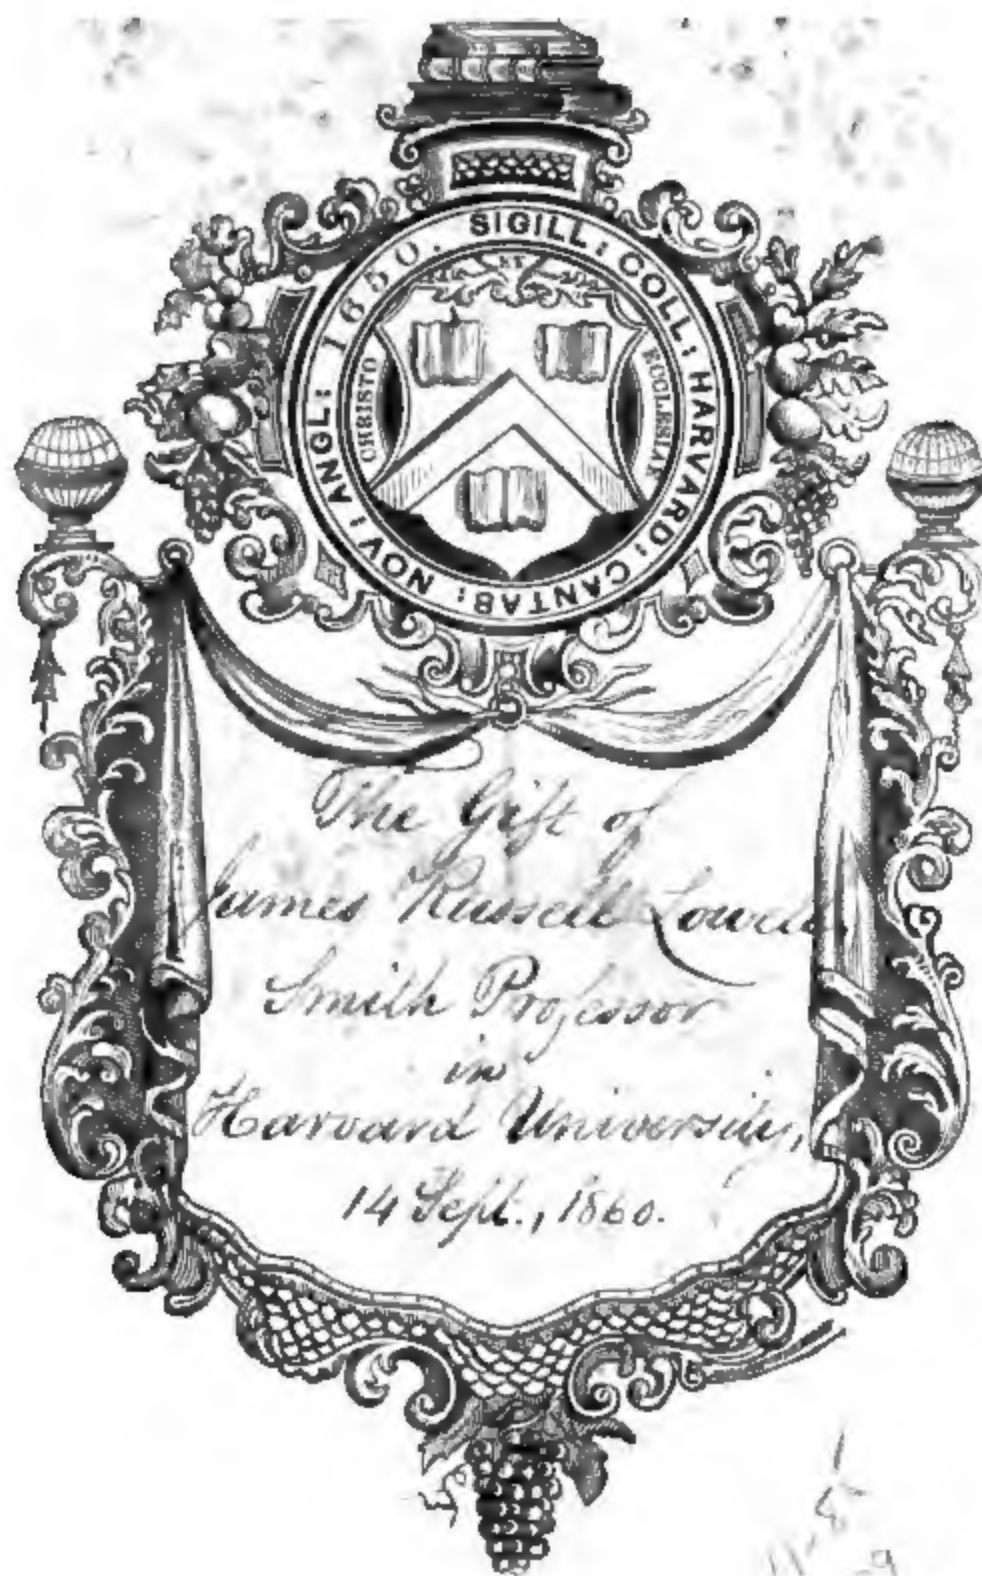 SIGILL: COLL: HARVARD: CANTAB: NOV: ANGL: 1650.
ET
CHRISTO
ECCLESIAE
The Gift of
James Russell Lowell
Smith Professor
in
Harvard University,
14 Sept., 1860.